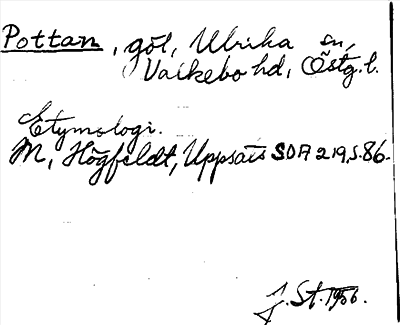 Pottan, göl, Ulrika sn,
Valkebo hd, Östg.l.
Etymologi.
M, Högfeldt, Uppsats SOA 219, s. 86.
J. St. 1956.